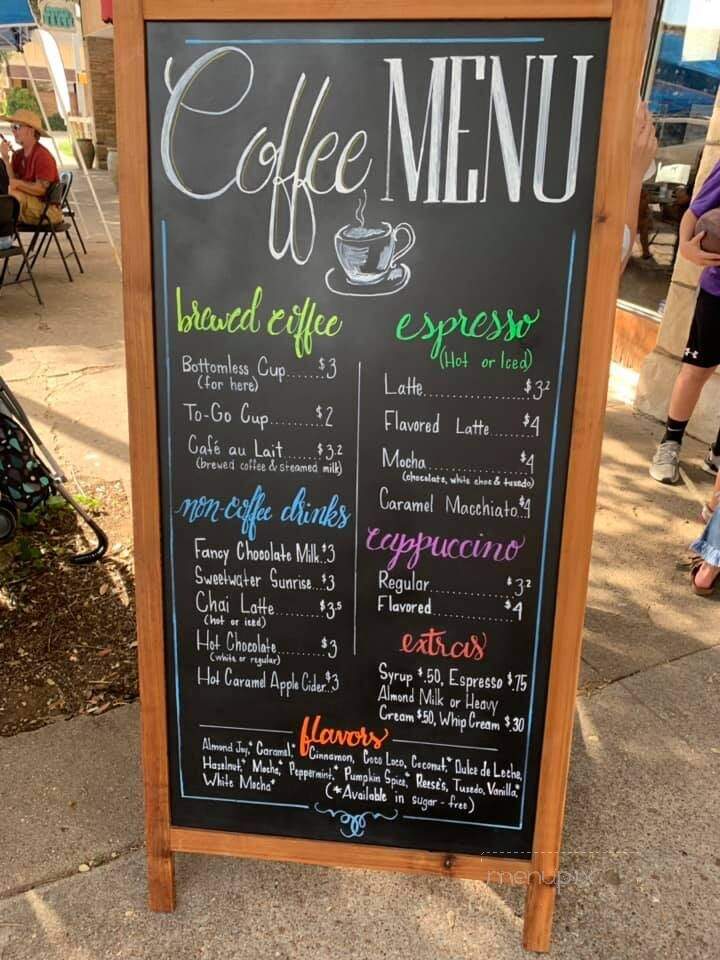 Coffee MENU
brewed coffee
Bottomless Cup......$3
(for here)
To-Go Cup..........$2
Café au Lait......$3.2
(brewed coffee & steamed milk)
non-coffee drinks
Fancy Chocolate Milk..$3
Sweetwater Sunrise...$3
Chai Latte........$3.5
(hot or iced)
Hot Chocolate........$3
(white or regular)
Hot Caramel Apple Cider..$3
espresso
(Hot or Iced)
Latte...............$3.2
Flavored Latte.......$4
Mocha...............$4
(chocolate, white choc & tuxedo)
Caramel Macchiato..$4
cappuccino
Regular.............$3.2
Flavored............$4
extras
Syrup $.50, Espresso $.75
Almond Milk or Heavy
Cream $.50, Whip Cream $.30
flavors
Almond Joy,* Caramel,* Cinnamon, Coco Loco, Coconut,* Dulce de Leche,
Hazelnut,* Mocha,* Peppermint,* Pumpkin Spice,* Reese's, Tuxedo, Vanilla,*
White Mocha*
(*Available in sugar-free)
menupix